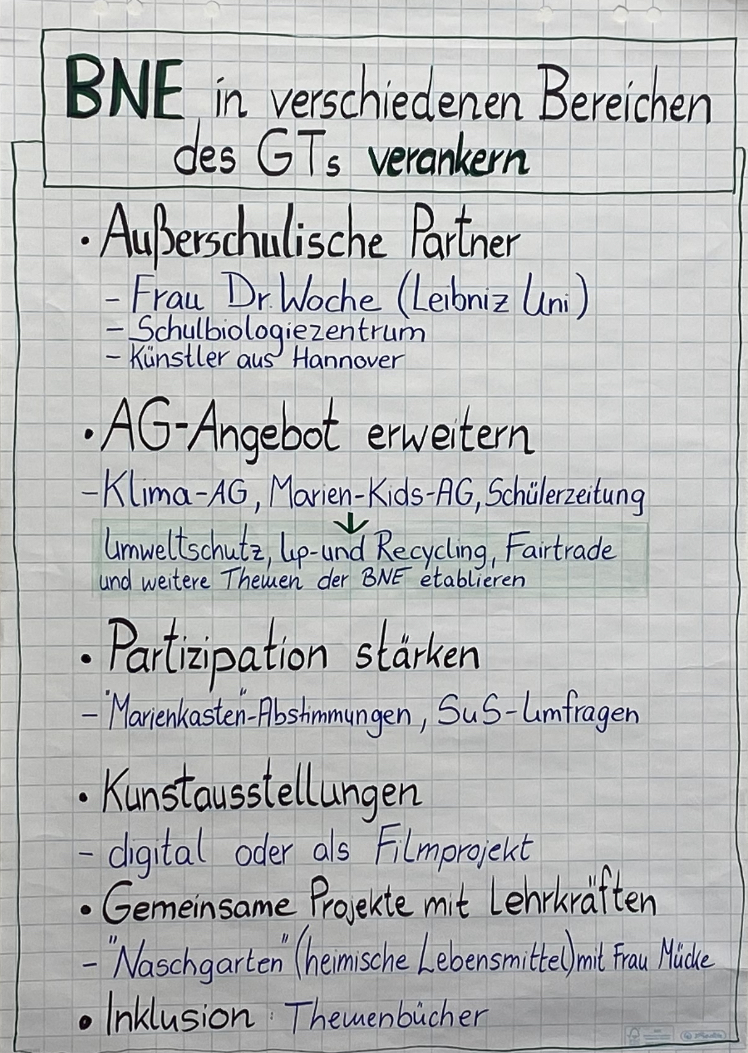 BNE in verschiedenen Bereichen
des GTs verankern
· Außerschulische Partner
- Frau Dr. Woche (Leibniz Uni)
- Schulbiologiezentrum
- Künstler aus Hannover
· AG-Angebot erweitern
- Klima-AG, Marien-Kids-AG, Schülerzeitung
↓
Umweltschutz, Up-und Recycling, Fairtrade
und weitere Themen der BNE etablieren
· Partizipation stärken
- "Marienkasten"-Abstimmungen, SuS-Umfragen
· Kunstausstellungen
- digital oder als Filmprojekt
· Gemeinsame Projekte mit Lehrkräften
- "Naschgarten" (heimische Lebensmittel) mit Frau Mücke
· Inklusion: Themenbücher